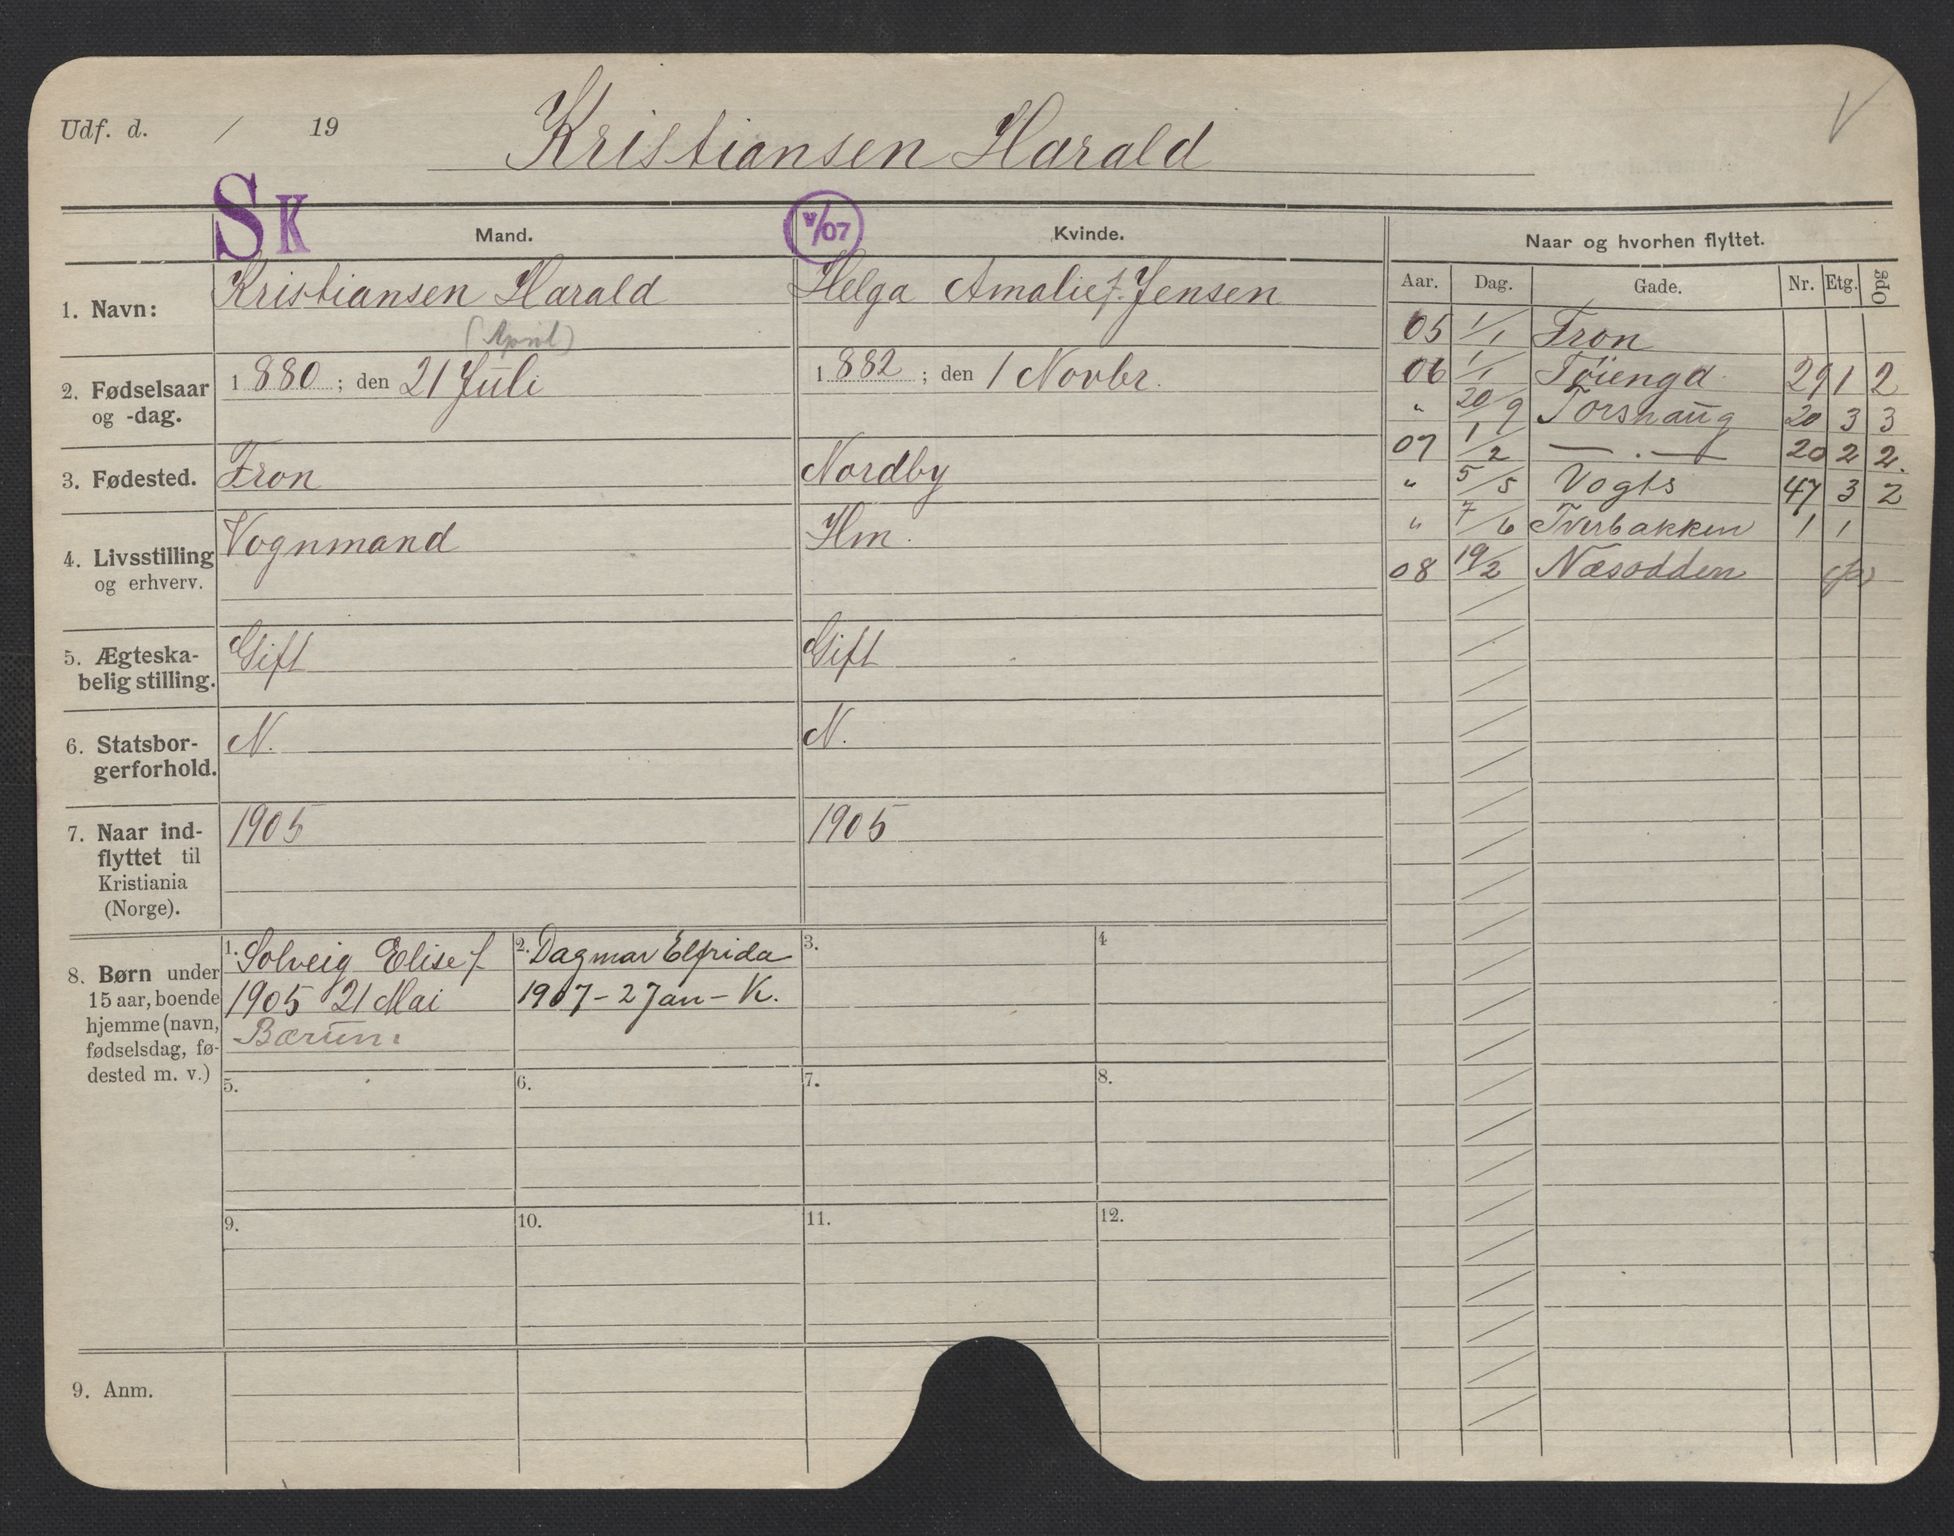 Udf. d. / 19
Kristiansen Harald
V
SK
V/07
Mand.
Kvinde.
Naar og hvorhen flyttet.
Aar. Dag. Gade. Nr. Etg. Opg
1. Navn:
Kristiansen Harald
(April)
Helga Amalie f. Jensen
2. Fødselsaar
og -dag.
1880; den 21 Juli
1882; den 1 Novbr.
3. Fødested.
Fron
Nordby
4. Livsstilling
og erhverv.
Vognmand
Hm.
5. Ægteska-
belig stilling.
Gift
Gift
6. Statsbor-
gerforhold.
N.
N.
7. Naar ind-
flyttet til
Kristiania
(Norge).
1905
1905
8. Børn under
15 aar, boende
hjemme (navn,
fødselsdag, fø-
dested m. v.)
1. Solveig Elise f
1905 21 Mai
Bærum.
2. Dagmar Elfrida
1907-27 Jan - K.
3.
4
5.
6.
7.
8.
9.
10.
11.
12.
9. Anm.
05 1/1 Fron
06 1/1 Töiengd. 29 1 2
" 20/9 Torshaug 20 3 3
07 1/2 — . — 20 2 2.
" 5/5 Vogts 47 3 2
" 7/6 Tverbakken 1 1
08 19/2 Næsodden